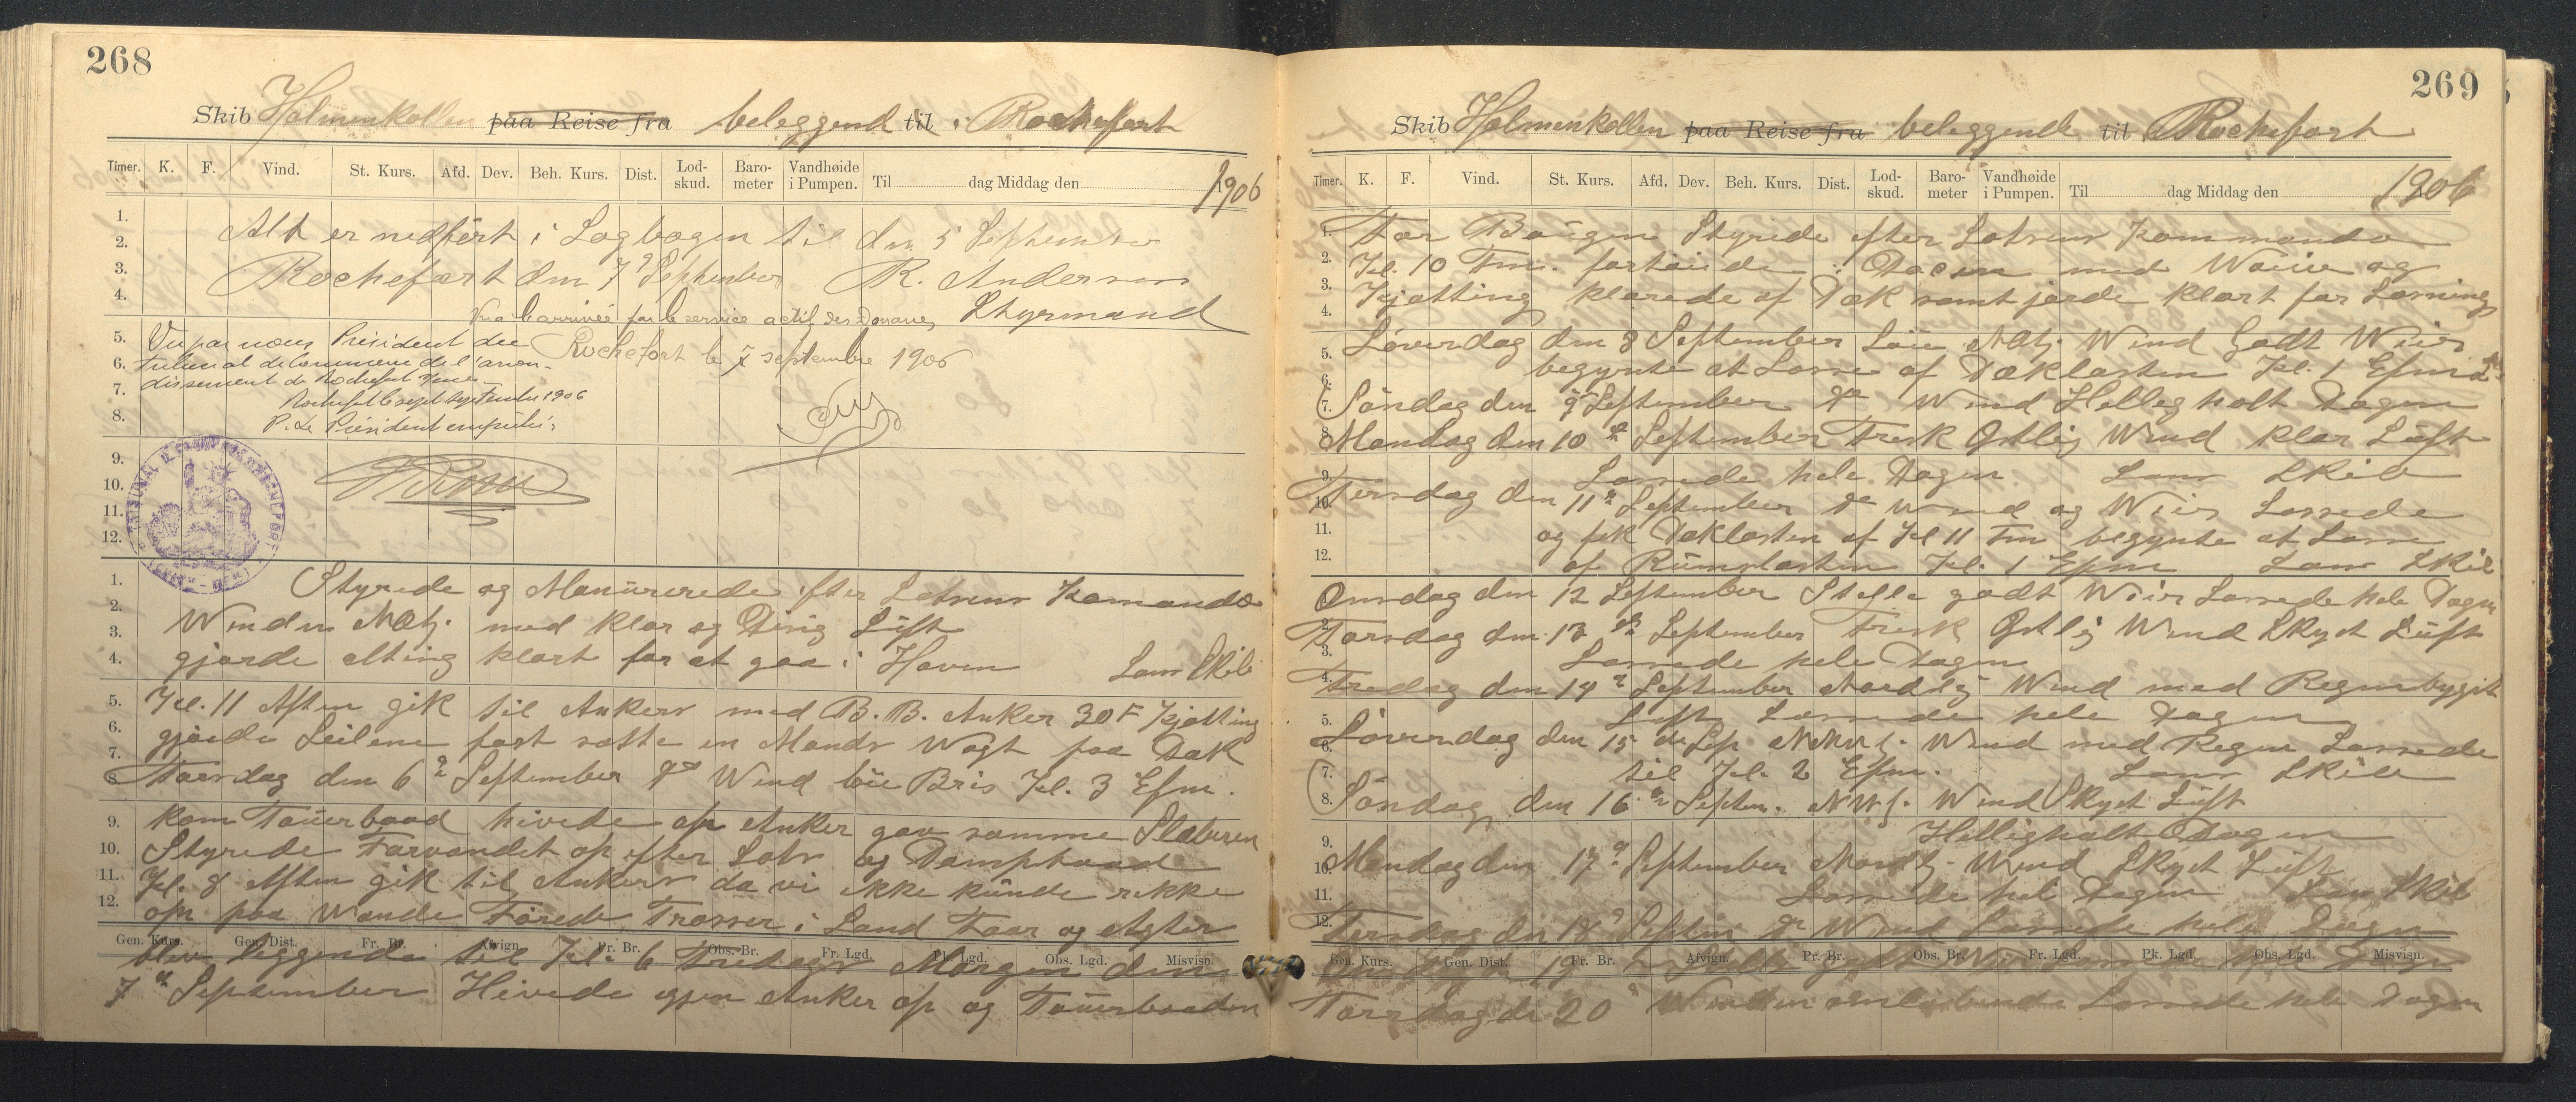 268
Skib Holmenkollen paa Reise fra beleggend til i Rochefort
Timer. K. F. Vind. St. Kurs. Afd. Dev. Beh. Kurs. Dist. Lod-skud. Baro-meter Vandhøide i Pumpen. Til dag Middag den 1906
Alt er nedført i Logbogen til den 5 September
Rochefort den 7 September R. Andersen
Styrmand
Vu à l'arrivée par le service actif des Douanes
Rochefort le 7 septembre 1906
Vu par nous Président du
tribunal de Commerce de l'arron-
dissement de Rochefort s/mer
Rochefort le sept septembre 1906
P. Le Président empêché
1.
2.
3.
4.
5.
6.
7.
8.
9.
10.
11.
12.
Styrede og Manürerede efter Lotsens Komando
Winden NOtl. med klar og Disig Lüft
gjorde alting klart for at gaa i Havn Lens Skib
Kl. 11 Aften gik til Ankers med B.B. Anker 30 F Kjetting
gjorde Seilene fast satte en Mands Wagt paa Dæk
Torsdag den 6 September do Wind löi Bris Kl. 3 Efm.
kom Tauerbaad hivede op Anker gav samme Slæberen
Styrede Farvandet op efter Lots og Dampbaad
Kl. 8 Aften gik til Ankers da vi ikke künde rekke
op paa Wande Förede Trosser i Land Foor og Agter
Gen. Kurs. Gen. Dist. Fr. Br. Afvign. Pr. Br. Obs. Br. Fr. Lgd. Pk. Lgd. Obs. Lgd. Misvisn.
blev liggende til Kl. 6 Fredags Morgen den
7 September Hivede igjen Anker op og Tauerbaaden
269
Skib Holmenkollen paa Reise fra beleggende til Rochefort
Timer. K. F. Vind. St. Kurs. Afd. Dev. Beh. Kurs. Dist. Lod-skud. Baro-meter Vandhøide i Pumpen. Til dag Middag den 1906
For Baugen Styrede efter Lotsens Kommando
Kl. 10 Fm. fortöiede i Docen med Waiie og
Kjetting klarede af Dæk samt jorde klart for Lossning
Löverdag den 8 September Löi NOtl. Wind Godt Weir
begynte at Losse af Dæklasten Kl. 1 Efm
Söndag den 9 September do Wind Hellig holt Dagen
Mandag den 10 September Frisk Östlig Wind klar Lüft
Lossede hele Dagen Lens Skib
Tirsdag den 11 September do Wind og Weir Lossede
og fik Dæklasten af Kl 11 Fm begynte at Losse
af Rümslasten Kl. 1 Efm Lens Skib
Onsdag den 12 September Stille godt Weir Lossede hele Dagen
Torsdag den 13 September Frisk Östlig Wind Skyet Lüft
Lossede hele Dagen
Fredag den 14 September Nordlig Wind med Regnbygit
Lüft Lossede hele Dagen
Löverdag den 15 de Sep NNWl. Wind med Regn Lossede
til Kl. 2 Efm. Lens Skib
Söndag den 16 Septem. NWl. Wind Skyet Lüft
Helligholt Dagen
Mandag den 17 September Nordl. Wind Skyet Lüft
Lossede hele Dagen Lens Skib
Tirsdag den 18 Septem do Wind Lossede hele Dagen
Gen. Kurs. Gen. Dist. Fr. Br. Afvign. Pr. Br. Obs. Br. Fr. Lgd. Pk. Lgd. Obs. Lgd. Misvisn.
Onsdag den 19 Stille godt Weir Lossede hele Dagen
Torsdag de 20 Winden omlöbende Lossede hele Dagen